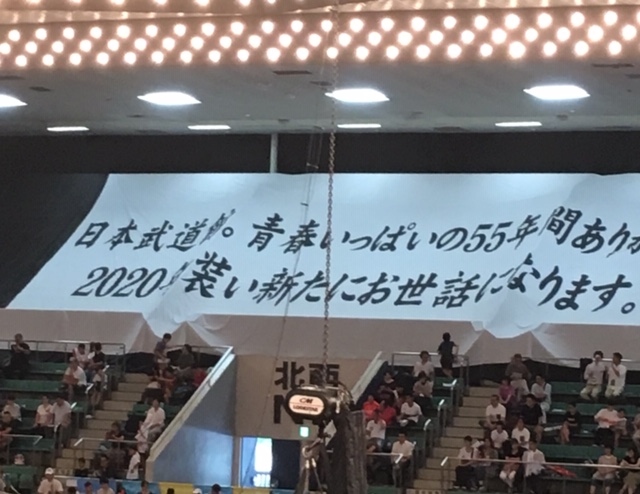 日本武道館。青春いっぱいの55年間あり
2020年装い新たにお世話になります。
北西
CM
LODESTAR